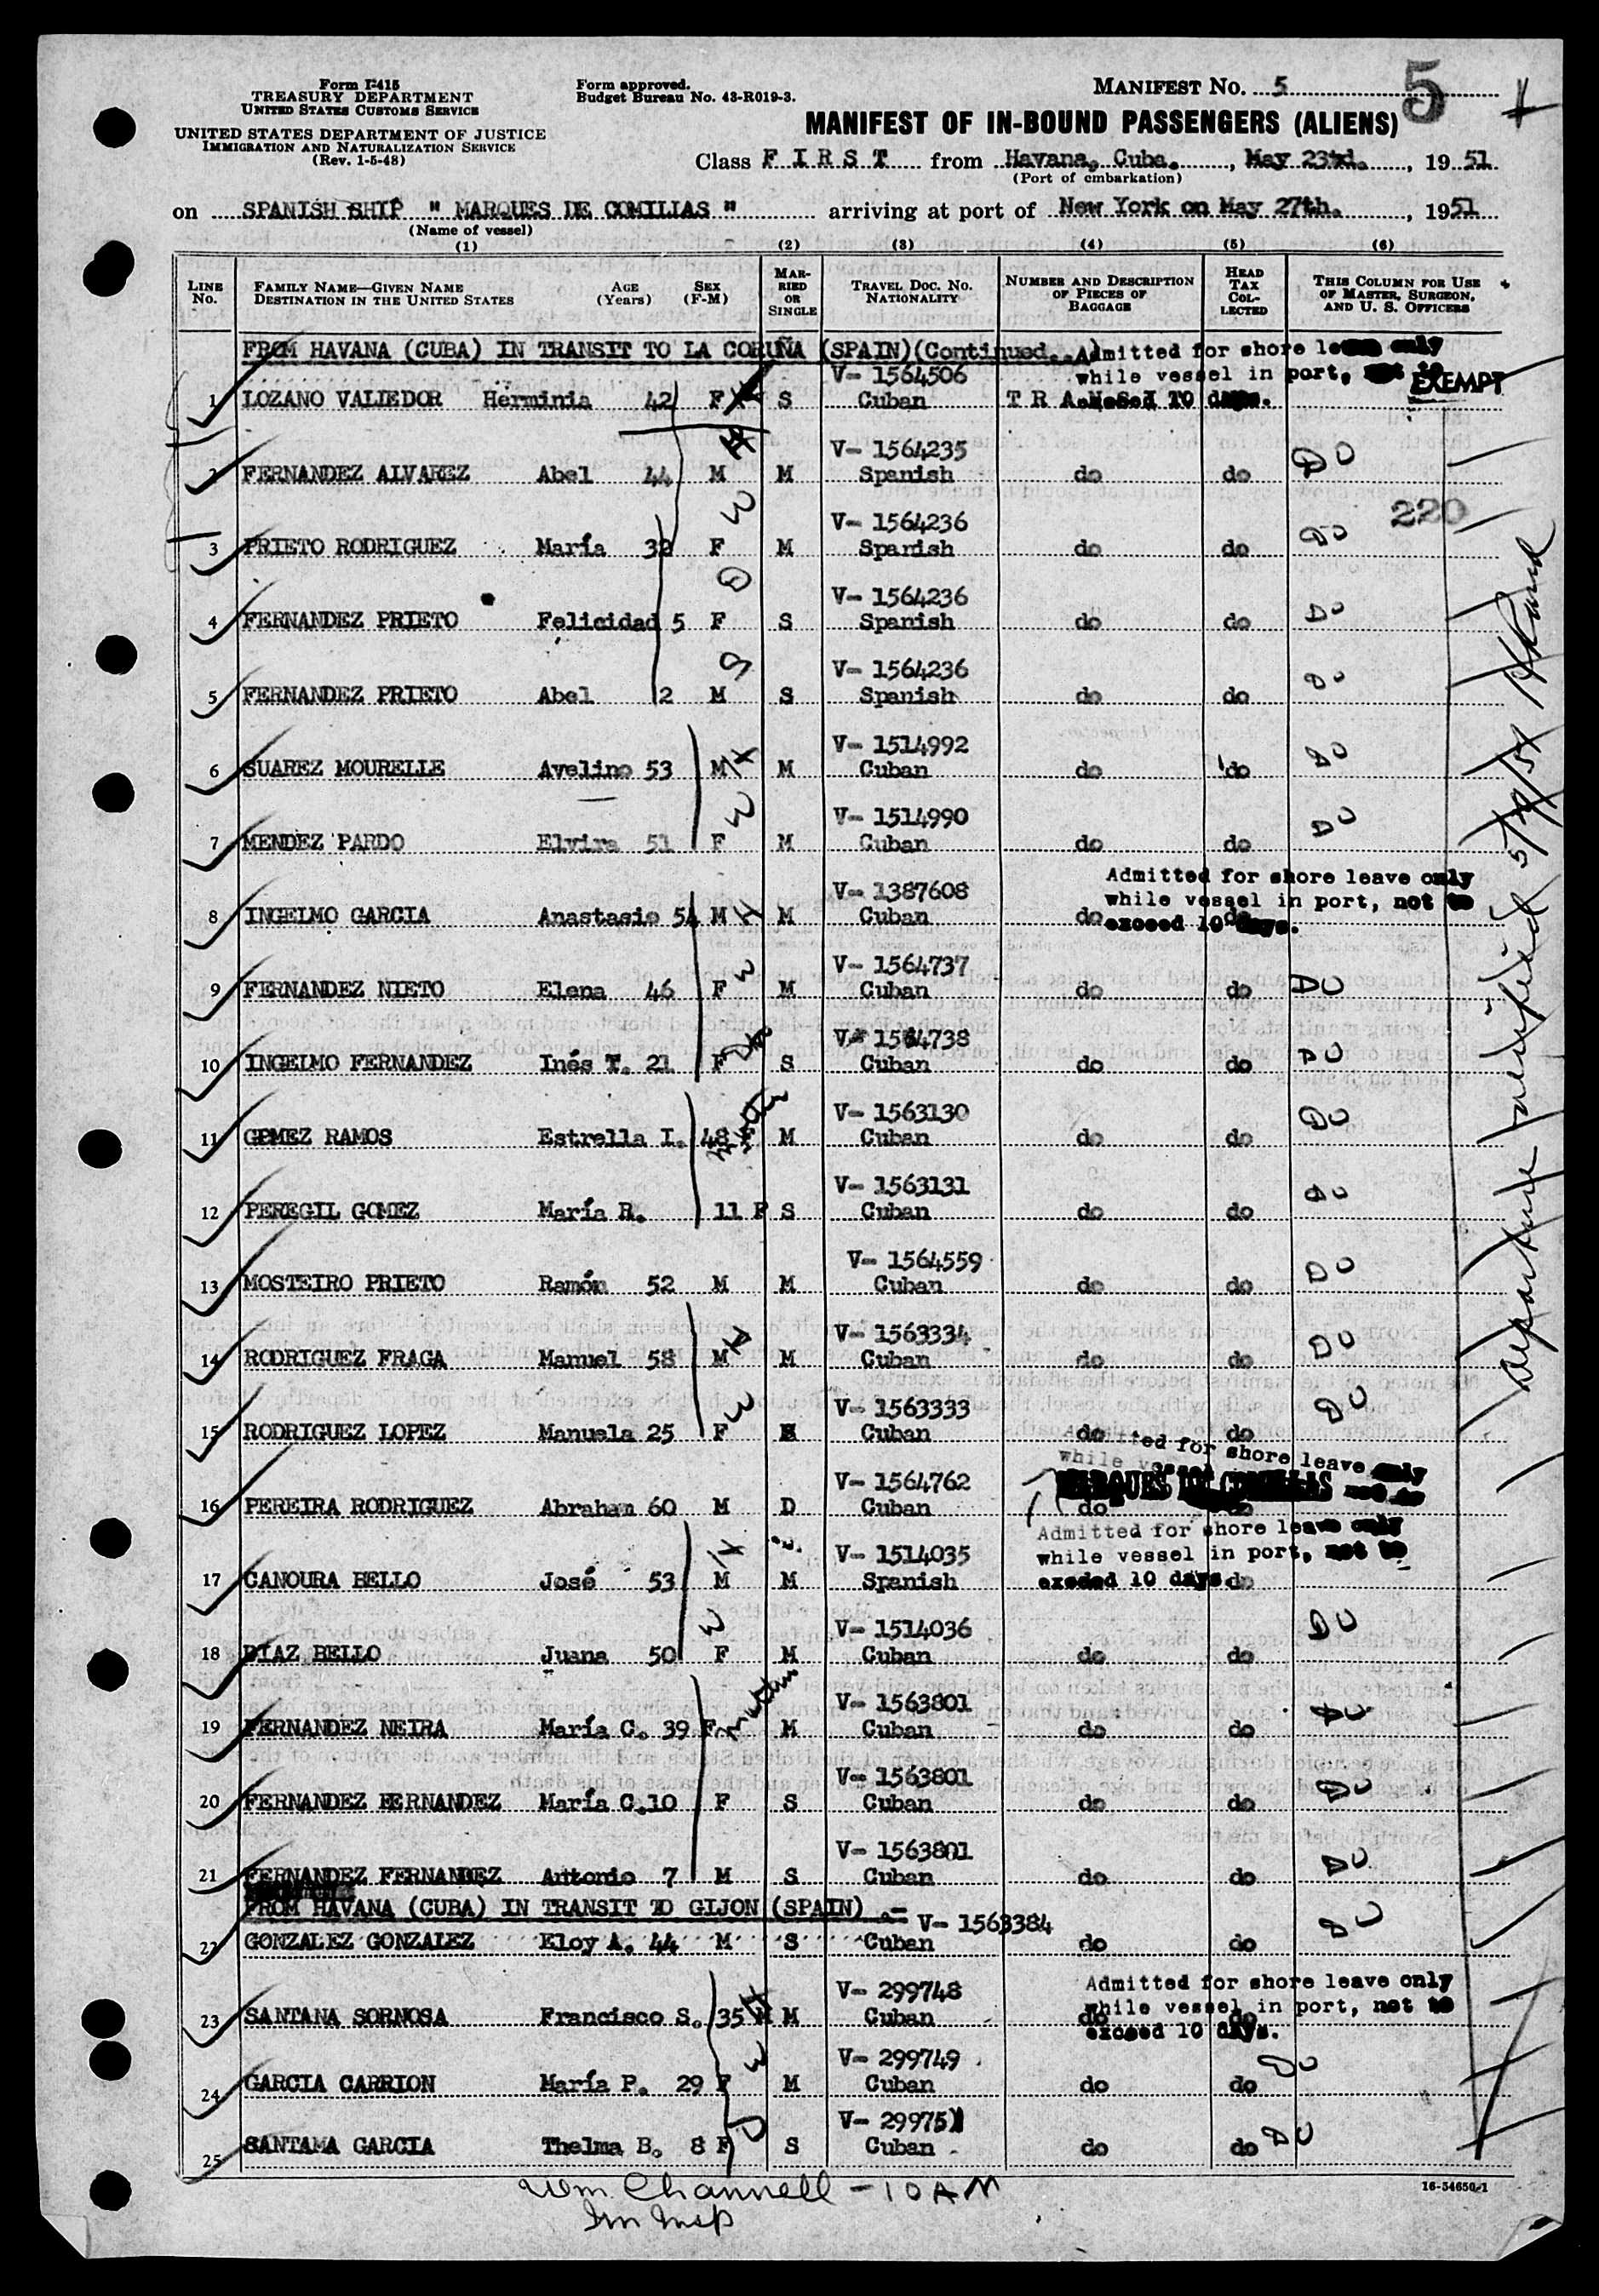 Form I-415
TREASURY DEPARTMENT
UNITED STATES CUSTOMS SERVICE
UNITED STATES DEPARTMENT OF JUSTICE
IMMIGRATION AND NATURALIZATION SERVICE
(Rev. 1-5-48)
Form approved.
Budget Bureau No. 43-R019-3.
MANIFEST No. 5 5
MANIFEST OF IN-BOUND PASSENGERS (ALIENS)
Class F I R S T from Havana, Cuba., May 23rd., 19 51
(Port of embarkation)
on SPANISH SHIP " MARQUES DE COMILIAS " arriving at port of New York on May 27th., 1951
(Name of vessel)
(1) (2) (3) (4) (5) (6)
LINE No. FAMILY NAME—GIVEN NAME DESTINATION IN THE UNITED STATES AGE (Years) SEX (F-M) MARRIED OR SINGLE TRAVEL DOC. NO. NATIONALITY NUMBER AND DESCRIPTION OF PIECES OF BAGGAGE HEAD TAX COLLECTED THIS COLUMN FOR USE OF MASTER, SURGEON, AND U. S. OFFICERS
FROM HAVANA (CUBA) IN TRANSIT TO LA CORUÑA (SPAIN)(Continued..)
Admitted for shore leave only
while vessel in port, not to
EXEMPT
1 LOZANO VALLEDOR Herminia 42 F S V- 1564506 Cuban
2 FERNANDEZ ALVAREZ Abel 44 M M V- 1564235 Spanish do do DO
220
3 PRIETO RODRIGUEZ María 32 F M V- 1564236 Spanish do do DO
4 FERNANDEZ PRIETO Felicidad 5 F S V- 1564236 Spanish do do DO
5 FERNANDEZ PRIETO Abel 2 M S V- 1564236 Spanish do do DO
6 SUAREZ MOURELLE Avelino 53 M M V- 1514992 Cuban do do DO
7 MENDEZ PARDO Elvira 51 F M V- 1514990 Cuban do do DO
Admitted for shore leave only
while vessel in port, not to
exceed 10 days.
8 INGELMO GARCIA Anastasio 54 M M V- 1387608 Cuban do do
9 FERNANDEZ NIETO Elena 46 F M V- 1564737 Cuban do do DO
10 INGELMO FERNANDEZ Inés T. 21 F S V- 1564738 Cuban do do DO
11 GOMEZ RAMOS Estrella I. 48 F M V- 1563130 Cuban do do DO
12 PEREGIL GOMEZ María R. 11 F S V- 1563131 Cuban do do DO
13 MOSTEIRO PRIETO Ramón 52 M M V- 1564559 Cuban do do DO
14 RODRIGUEZ FRAGA Manuel 58 M M V- 1563334 Cuban do do DO
15 RODRIGUEZ LOPEZ Manuela 25 F V- 1563333 Cuban do do DO
while vessel for shore leave only
16 PEREIRA RODRIGUEZ Abraham 60 M D V- 1564762 Cuban do do
Admitted for shore leave only
while vessel in port, not to
exceed 10 days
17 CANOURA BELLO José 53 M M V- 1514035 Spanish do
18 DIAZ BELLO Juana 50 F M V- 1514036 Cuban do do DO
19 FERNANDEZ NEIRA María C. 39 F M V- 1563801 Cuban do do DO
20 FERNANDEZ FERNANDEZ María C. 10 F S V- 1563801 Cuban do do DO
21 FERNANDEZ FERNANDEZ Antonio 7 M S V- 1563801 Cuban do do DO
FROM HAVANA (CUBA) IN TRANSIT TO GIJON (SPAIN) .-
22 GONZALEZ GONZALEZ Eloy A. 44 M S V- 1563384 Cuban do do DO
Admitted for shore leave only
while vessel in port, not to
exceed 10 days.
23 SANTANA SORNOSA Francisco S. 35 M M V- 299748 Cuban do do
24 GARCIA CARRION María P. 29 F M V- 299749 Cuban do do DO
25 SANTAMA GARCIA Thelma B. 8 F S V- 299751 Cuban do do DO
Departure verified
Wm. Channell - 10 AM
Im Insp
16-54650-1